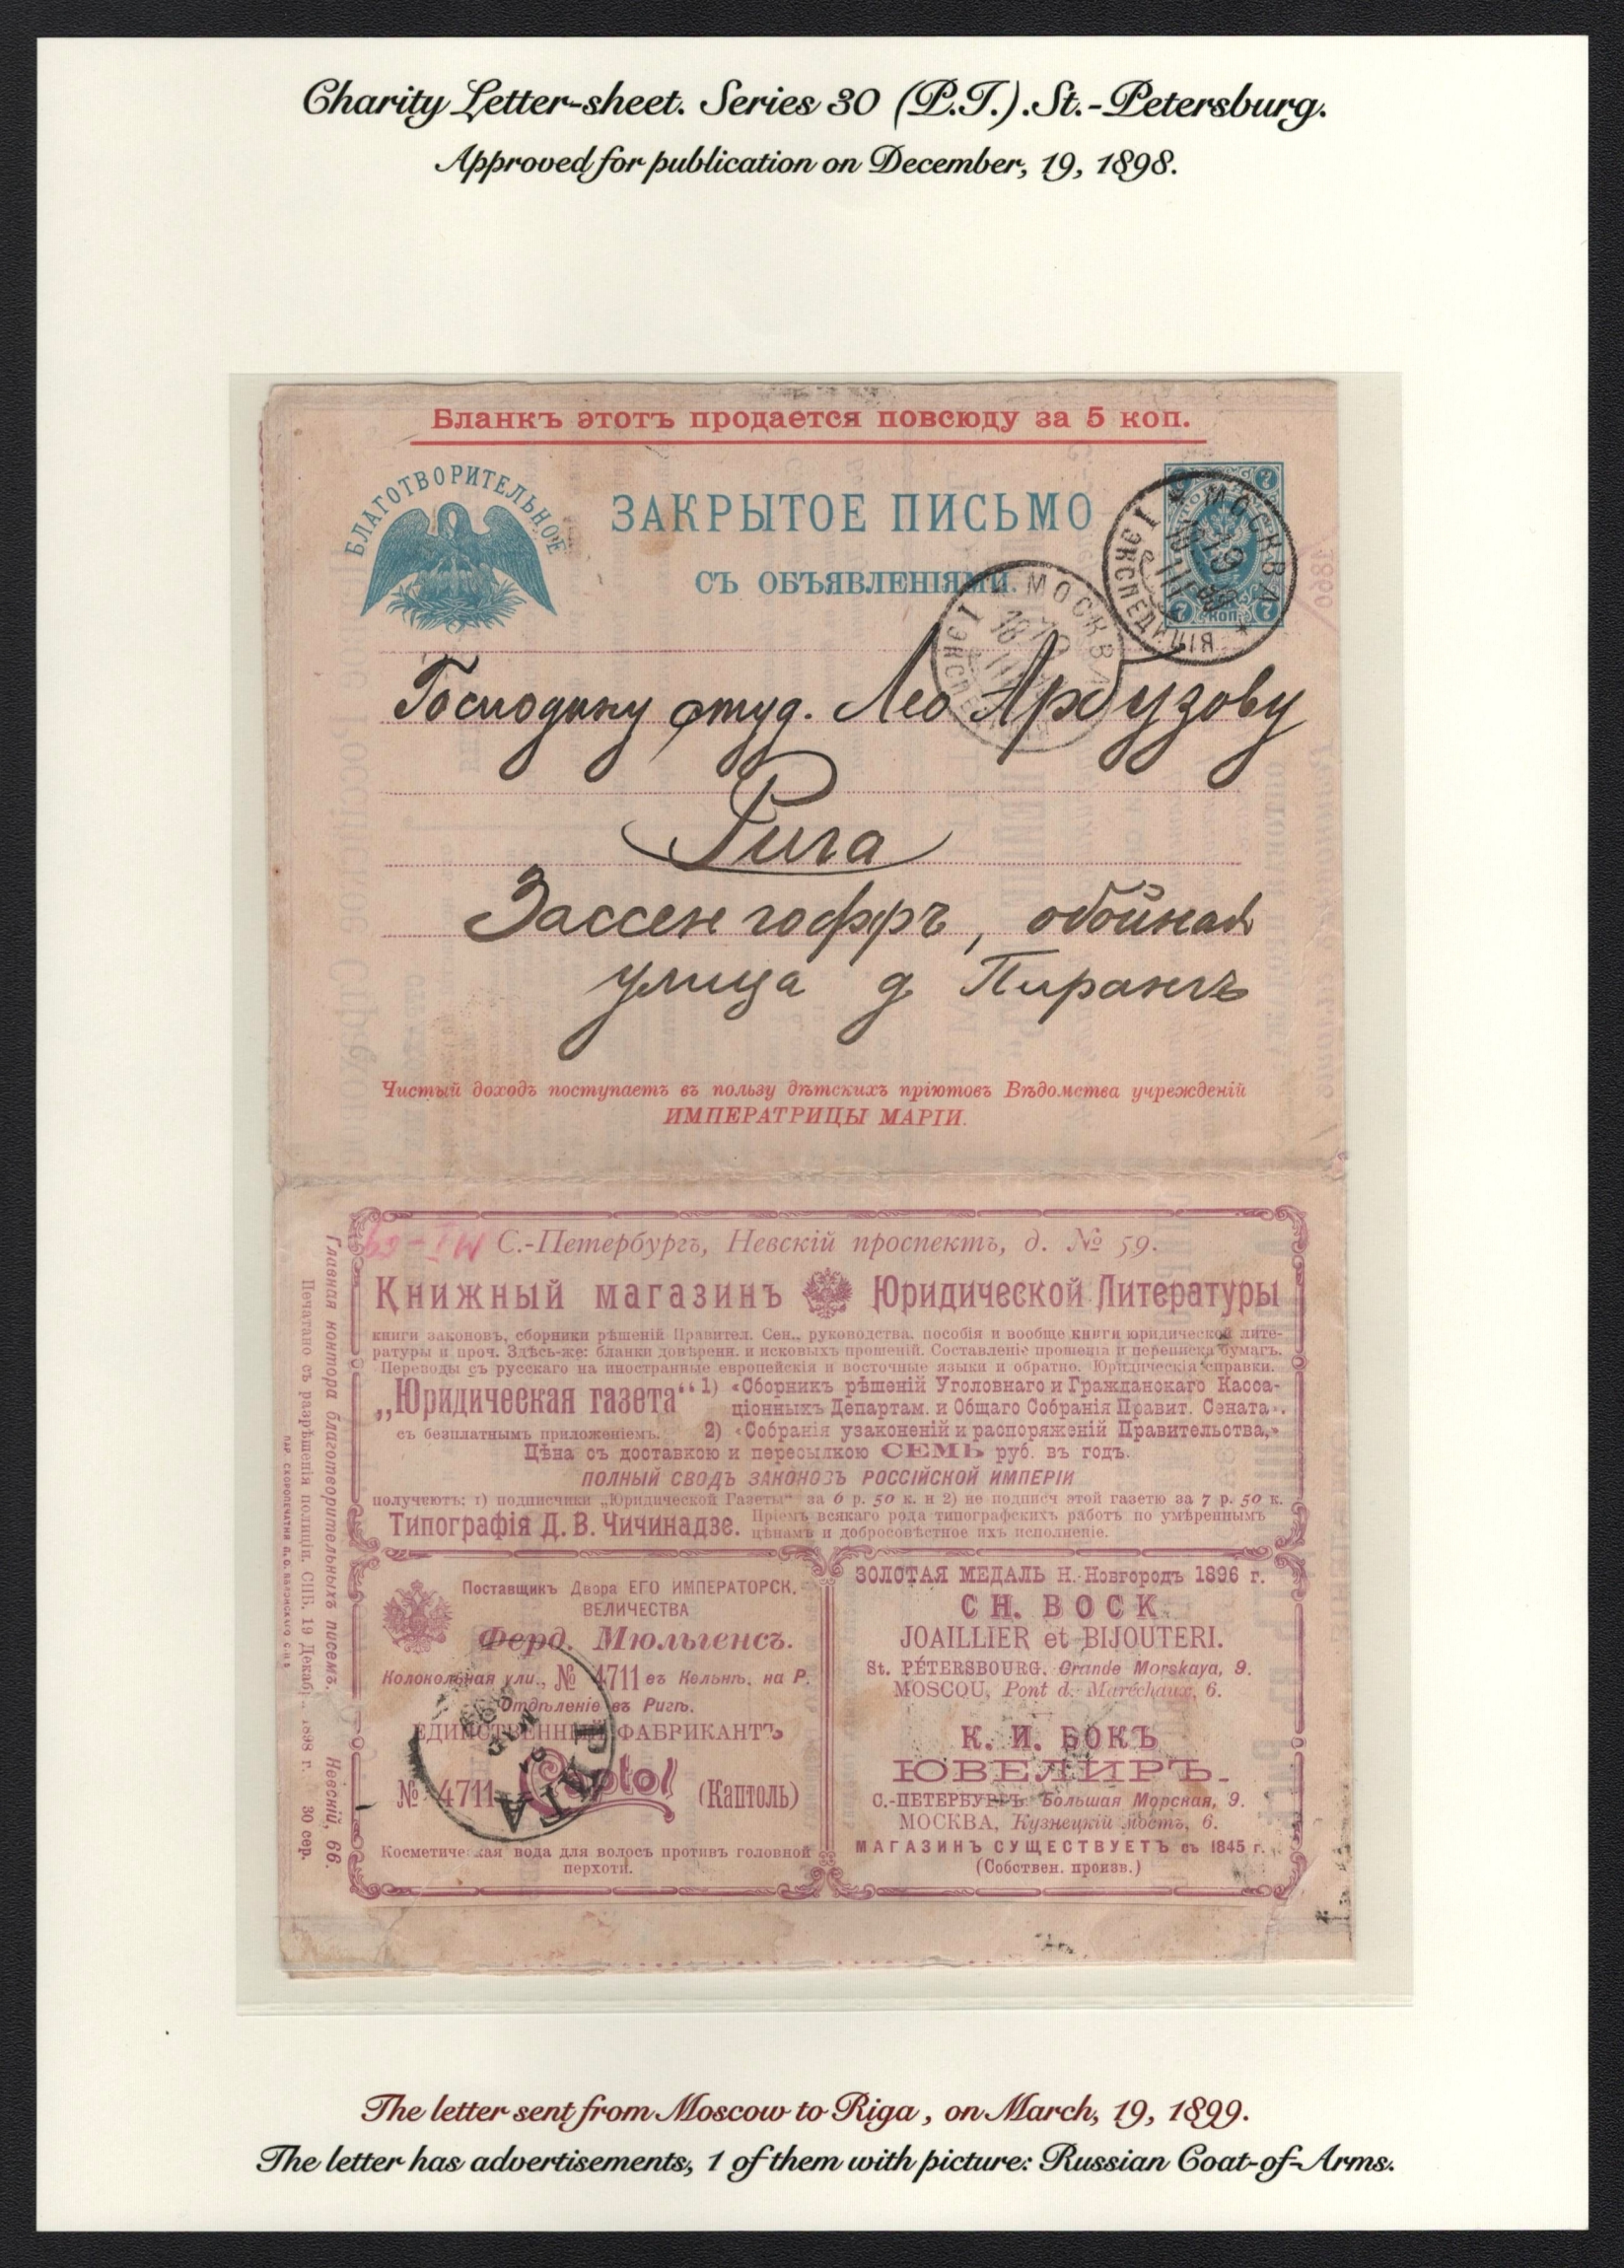 Charity Letter-sheet. Series 30 (P.T.).St.-Petersburg.
Approved for publication on December, 19, 1898.
Бланкъ этотъ продается повсюду за 5 коп.
БЛАГОТВОРИТЕЛЬНОЕ
ЗАКРЫТОЕ ПИСЬМО
СЪ ОБЪЯВЛЕНІЯМИ.
7 КОП. 7
МОСКВА
19 III
I ЭКСПЕДИЦІЯ
МОСКВА
18 III
Господину студ. Лео Арбузову
Рига
Зассенгоффъ, обойная
улица д Пирангъ
Чистый доходъ поступаетъ въ пользу дѣтскихъ пріютовъ Вѣдомства учрежденій
ИМПЕРАТРИЦЫ МАРІИ.
С.-Петербургъ, Невскій проспектъ, д. № 59.
Книжный магазинъ Юридической Литературы
книги законовъ, сборники рѣшеній Правител. Сен., руководства, пособія и вообще книги юридической лите-
ратуры и проч. Здѣсь-же: бланки довѣренн. и исковыхъ прошеній. Составленіе прошенія и переписка бумагъ.
Переводы съ русскаго на иностранные европейскія и восточные языки и обратно. Юридическія справки.
„Юридическая газета“ 1) «Сборникъ рѣшеній Уголовнаго и Гражданскаго Касса-
ціонныхъ Департам. и Общаго Собранія Правит. Сената».
съ безплатнымъ приложеніемъ. 2) «Собранія узаконеній и распоряженій Правительства,»
Цѣна съ доставкою и пересылкою СЕМЬ руб. въ годъ.
ПОЛНЫЙ СВОДЪ ЗАКОНОВЪ РОССІЙСКОЙ ИМПЕРІИ
получеютъ: 1) подписчики „Юридической Газеты“ за 6 р. 50 к. и 2) не подписч этой газетю за 7 р. 50 к.
Типографія Д. В. Чичинадзе. Пріемъ всякаго рода типографскихъ работъ по умѣреннымъ
цѣнамъ и добросовѣстное ихъ исполненіе.
Поставщикъ Двора ЕГО ИМПЕРАТОРСК.
ВЕЛИЧЕСТВА
Ферд. Мюльгенсъ.
Колокольная ули., № 4711 въ Кельнѣ, на Р.
Отдѣленіе въ Ригѣ.
ЕДИНСТВЕННЫЙ ФАБРИКАНТЪ
№ 4711 Captol (Каптоль)
Косметическая вода для волосъ противъ головной
перхоти.
РИГА
ЗОЛОТАЯ МЕДАЛЬ Н.-Новгородъ 1896 г.
CH. BOCK
JOAILLIER et BIJOUTERI.
St. PÉTERSBOURG. Grande Morskaya, 9.
MOSCOU, Pont d. Maréchaux, 6.
К. И. БОКЪ
ЮВЕЛИРЪ.
С.-ПЕТЕРБУРГЪ. Большая Морская, 9.
МОСКВА, Кузнецкій мостъ, 6.
МАГАЗИНЪ СУЩЕСТВУЕТЪ съ 1845 г.
(Собствен. произв.)
Главная контора благотворительныхъ писемъ. Невскій, 66.
Печатано съ разрѣшенія полиціи. СПБ. 19 Декабр. 1898 г. 30 сер.
The letter sent from Moscow to Riga , on March, 19, 1899.
The letter has advertisements, 1 of them with picture: Russian Coat-of-Arms.